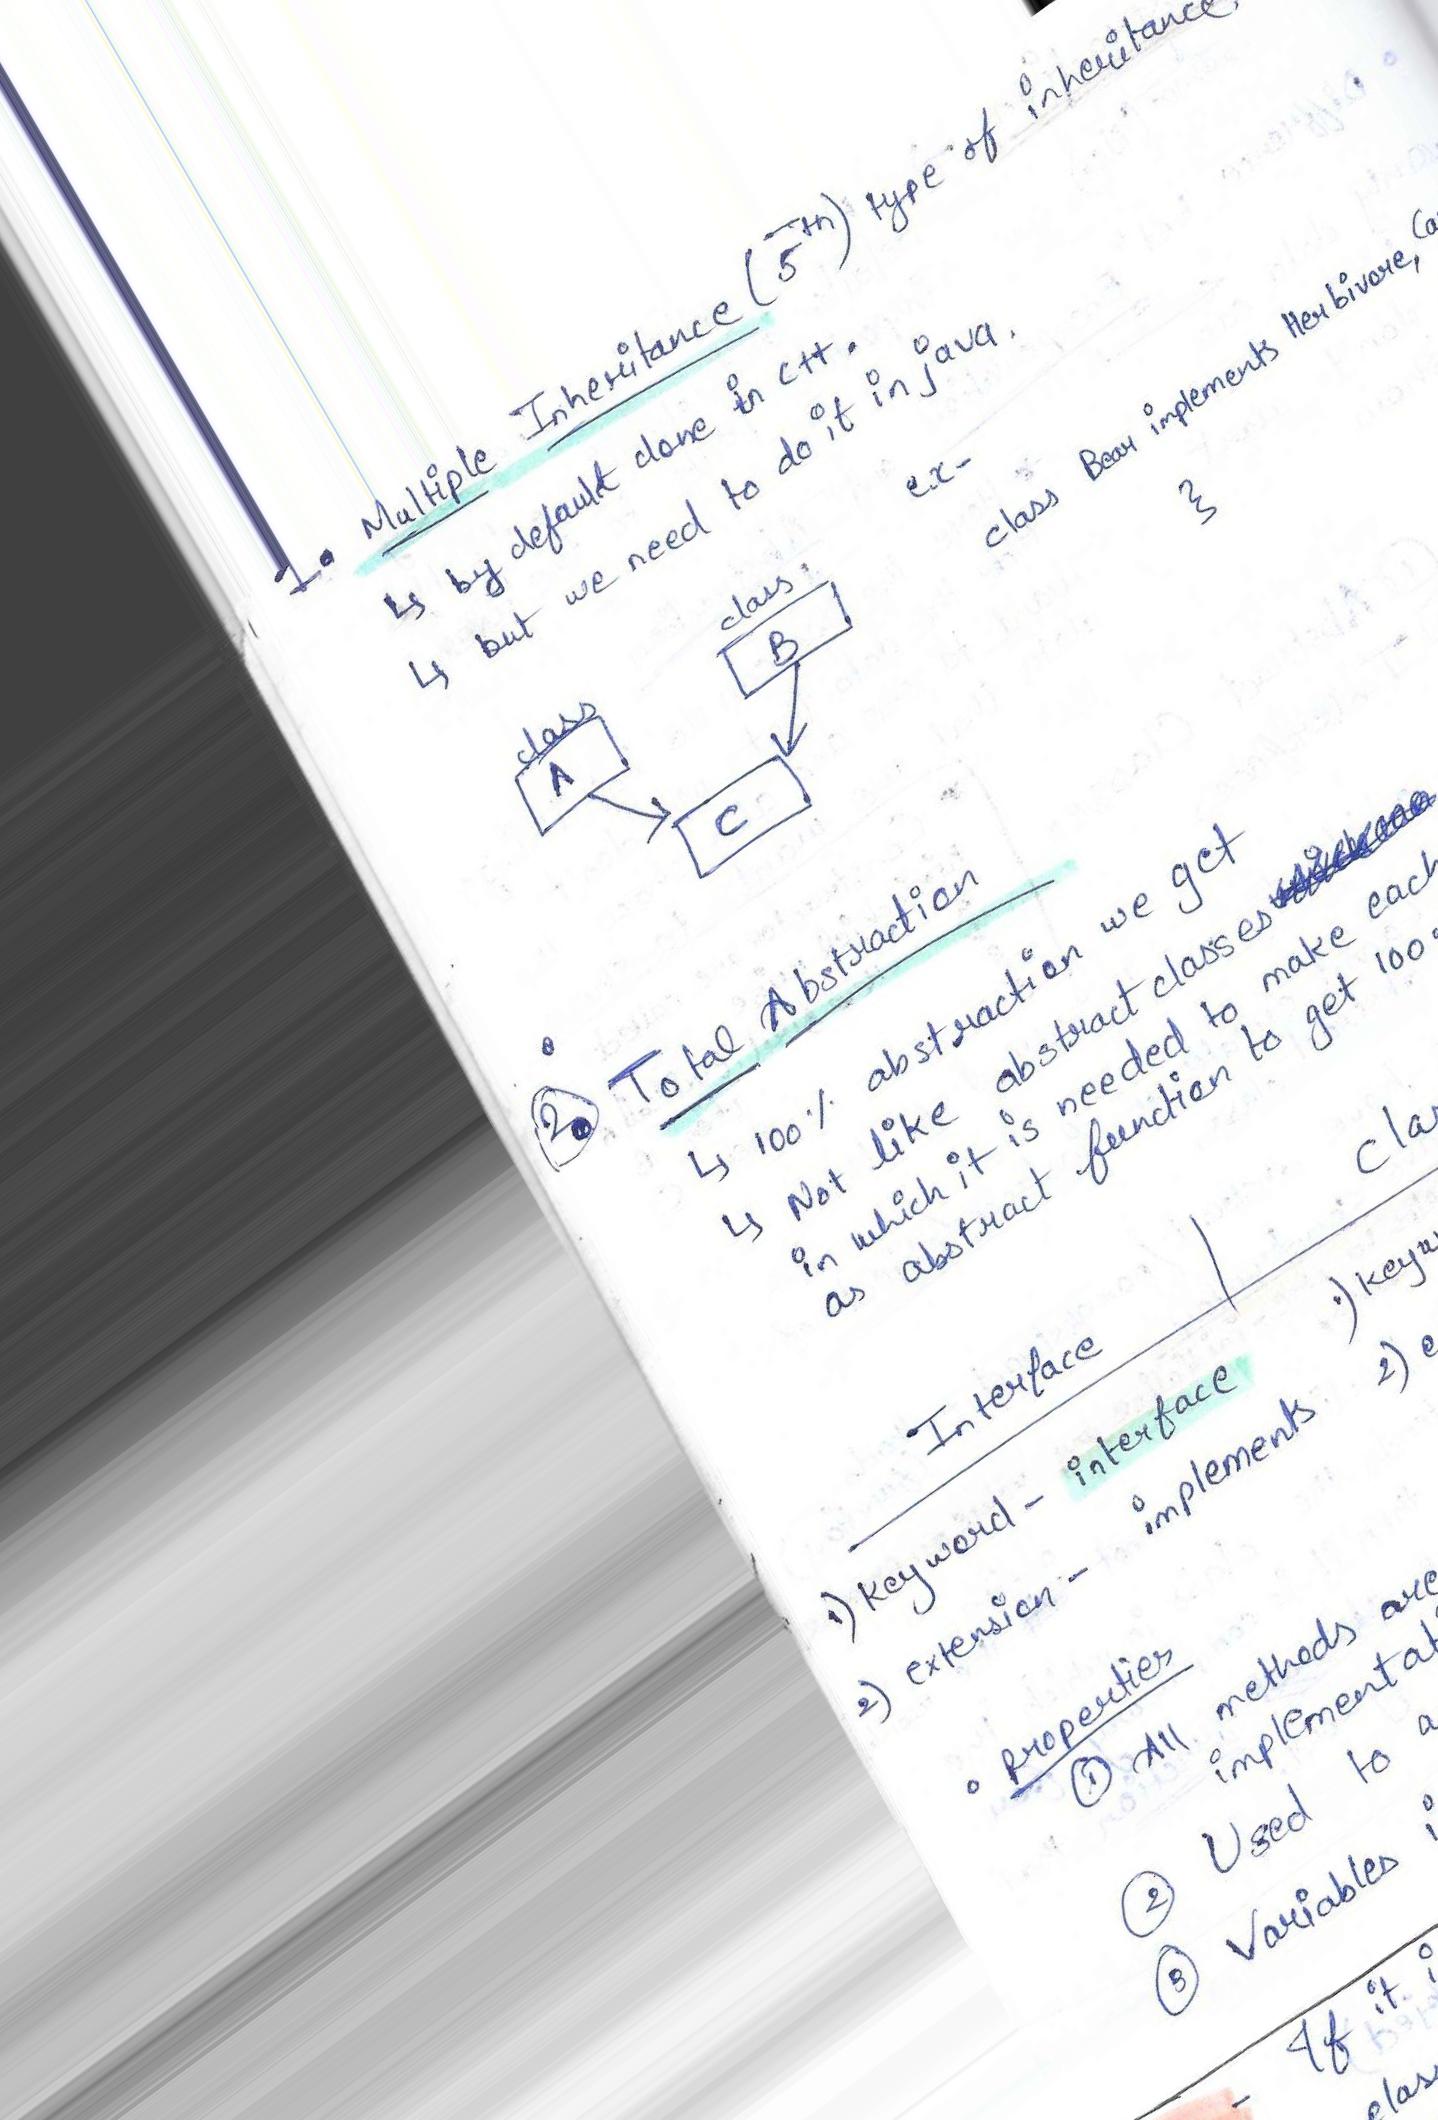 1. Multiple Inheritance (5th) type of inheritance.
↳ by default done in C++.
↳ but we need to do it in java.
ex-
class Bear implements Herbivore,
}
class
A
class
B
C
2. Total Abstraction
↳ 100% abstraction we get
↳ Not like abstract classes
in which it is needed to make each
as abstract function to get 100%
Interface
1) Keyword - interface
2) extension - implements
1)
2)
• Properties
① All methods are
② Used to
③ Variables
- If it